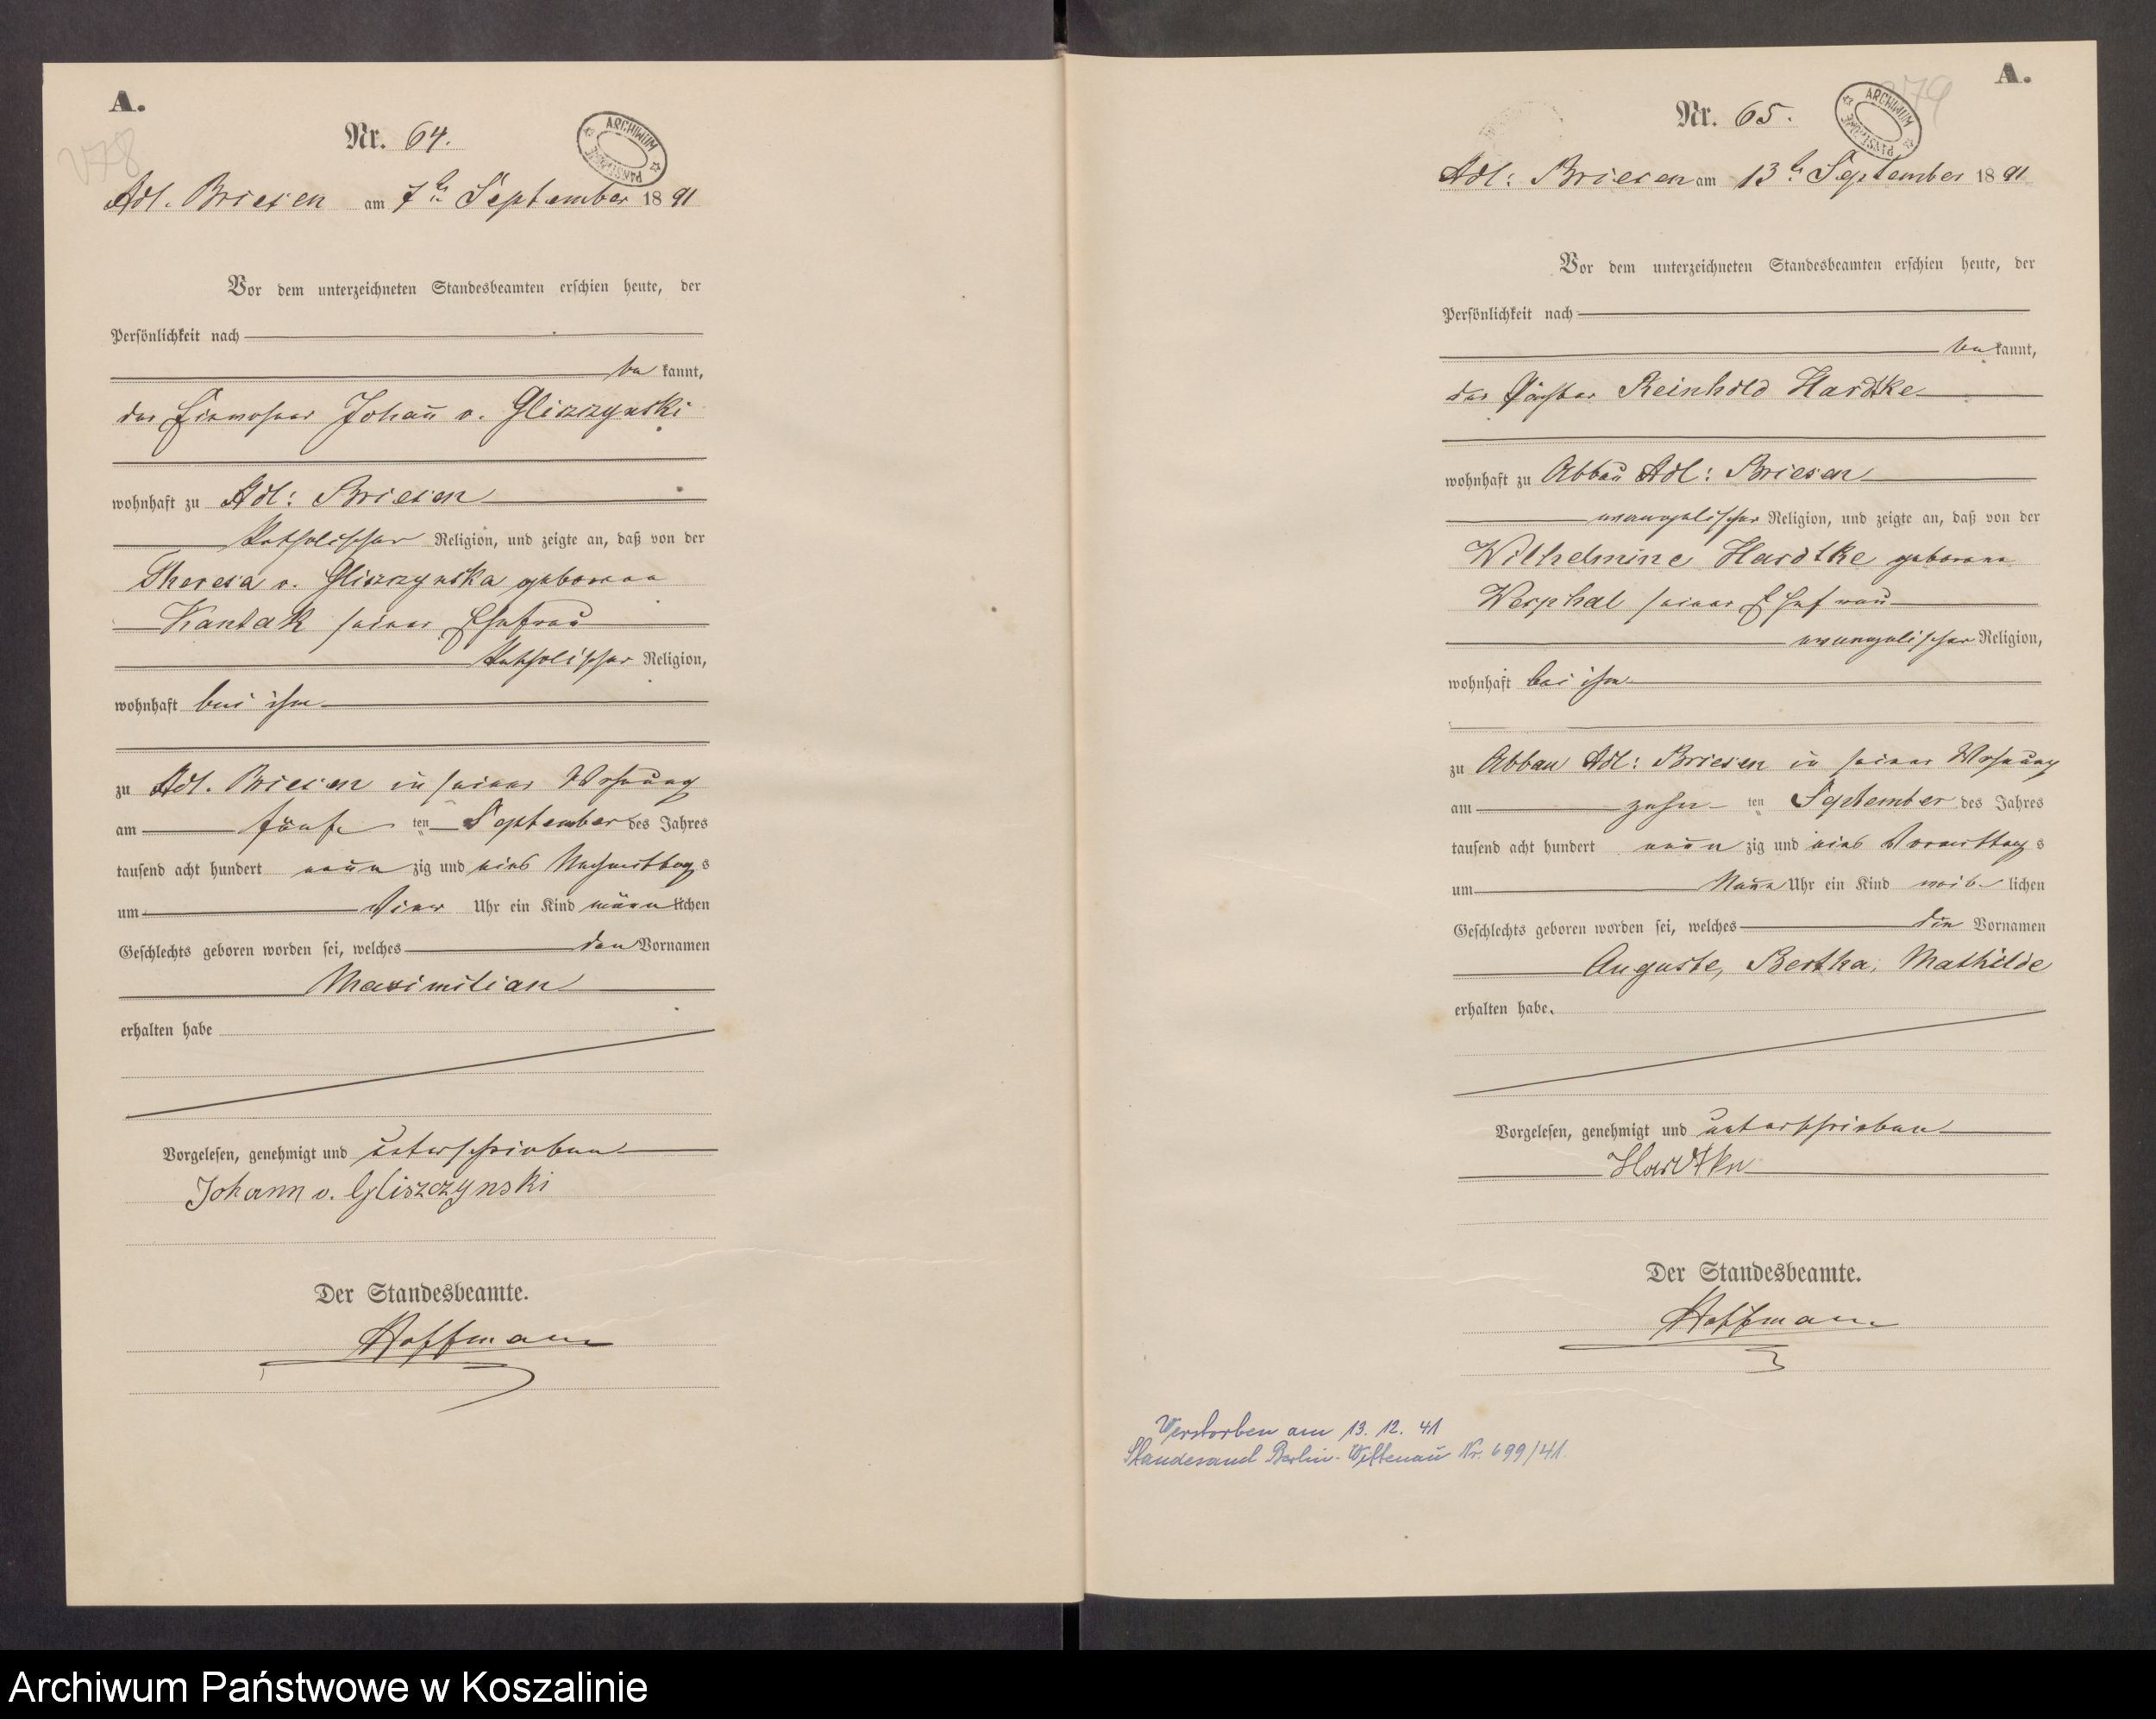 A.
V78
Nr. 64.
ARCHIWUM PAŃSTWOWE
Adl. Briesen am 7ten September 1891
Vor dem unterzeichneten Standesbeamten erschien heute, der
Persönlichkeit nach
bekannt,
der Einwohner Johann v. Gliszzynski
wohnhaft zu Adl: Briesen
katholischer Religion, und zeigte an, daß von der
Theresa v. Gliszzynska geborene
Kantak seiner Ehefrau
katholischer Religion,
wohnhaft bei ihm
zu Adl. Briesen in seiner Wohnung
am fünften September des Jahres
tausend acht hundert neunzig und eins Nachmittags
um Vier Uhr ein Kind männlichen
Geschlechts geboren worden sei, welches den Vornamen
Maximilian
erhalten habe
Vorgelesen, genehmigt und unterschrieben
Johann v. Gliszczynski
Der Standesbeamte.
Hoffmann
A.
V79
Nr. 65.
ARCHIWUM PAŃSTWOWE
Adl: Briesen am 13ten September 1891
Vor dem unterzeichneten Standesbeamten erschien heute, der
Persönlichkeit nach
bekannt,
der Pächter Reinhold Hardtke
wohnhaft zu Abbau Adl: Briesen
evangelischer Religion, und zeigte an, daß von der
Wilhelmine Hardtke geborene
Wesphal seiner Ehefrau
evangelischer Religion,
wohnhaft bei ihm
zu Abbau Adl: Briesen in seiner Wohnung
am zehnten September des Jahres
tausend acht hundert neunzig und eins Vormittags
um Neun Uhr ein Kind weiblichen
Geschlechts geboren worden sei, welches die Vornamen
Auguste, Bertha, Mathilde
erhalten habe.
Vorgelesen, genehmigt und unterschrieben
Hardtke
Der Standesbeamte.
Hoffmann
Verstorben am 13. 12. 41
Standesamt Berlin-Wittenau Nr. 699/41.
Archiwum Państwowe w Koszalinie